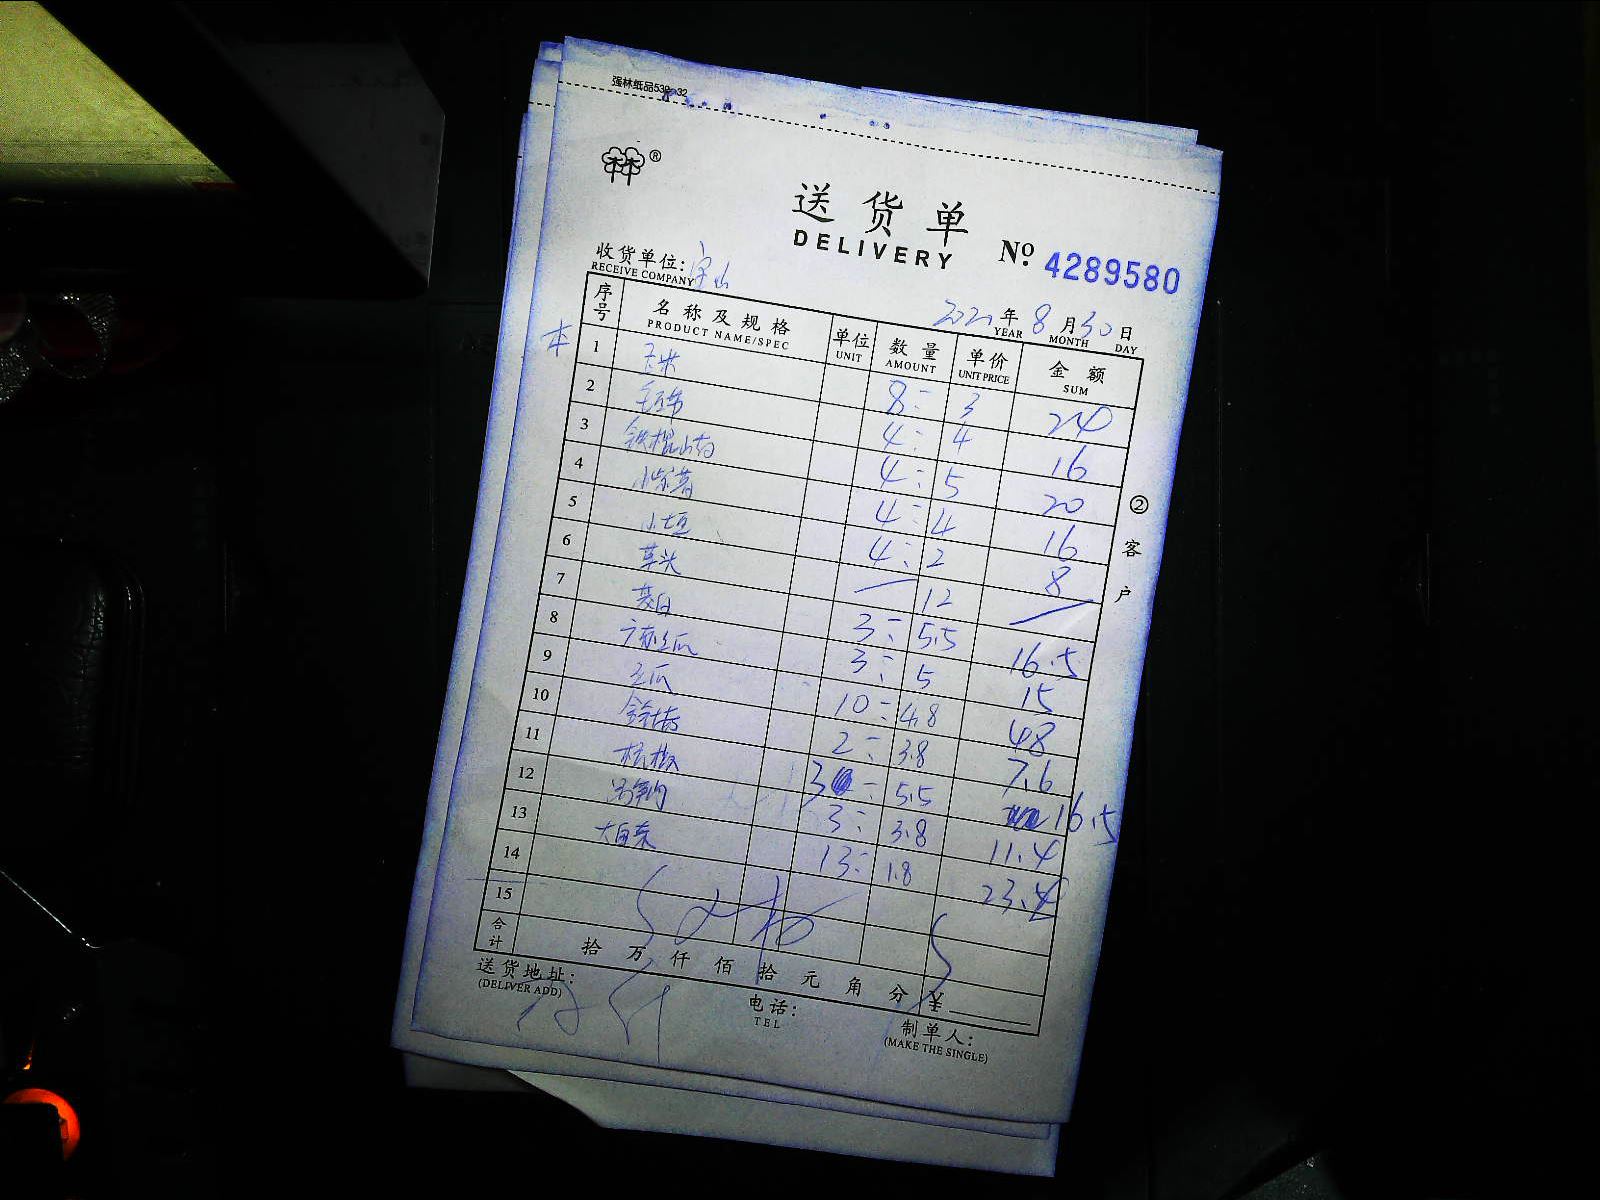 强林纸品530-32
®
送货单
DELIVERY
No 4289580
收货单位:
RECEIVE COMPANY
2021年8月30日
YEAR MONTH DAY
序号 名称及规格 单位 数量 单价 金额
PRODUCT NAME/SPEC UNIT AMOUNT UNIT PRICE SUM
本
1 玉米 8 3 24
2 毛豆节 4 4 16
3 铁棍山药 4 5 20
4 小紫薯 4 4 16
5 小土豆 4 2 8
6 草头 12
7 茭白 3 5.5 16.5
8 3 5 15
9 10 4.8 48
10 2 3.8 7.6
11 杭椒 3 5.5 16.5
12 3 3.8 11.4
13 大白菜 13 1.8 23.4
14
15
合计 拾万仟佰拾元角分 ¥
送货地址:
(DELIVER ADD)
电话:
TEL
制单人:
(MAKE THE SINGLE)
②客户